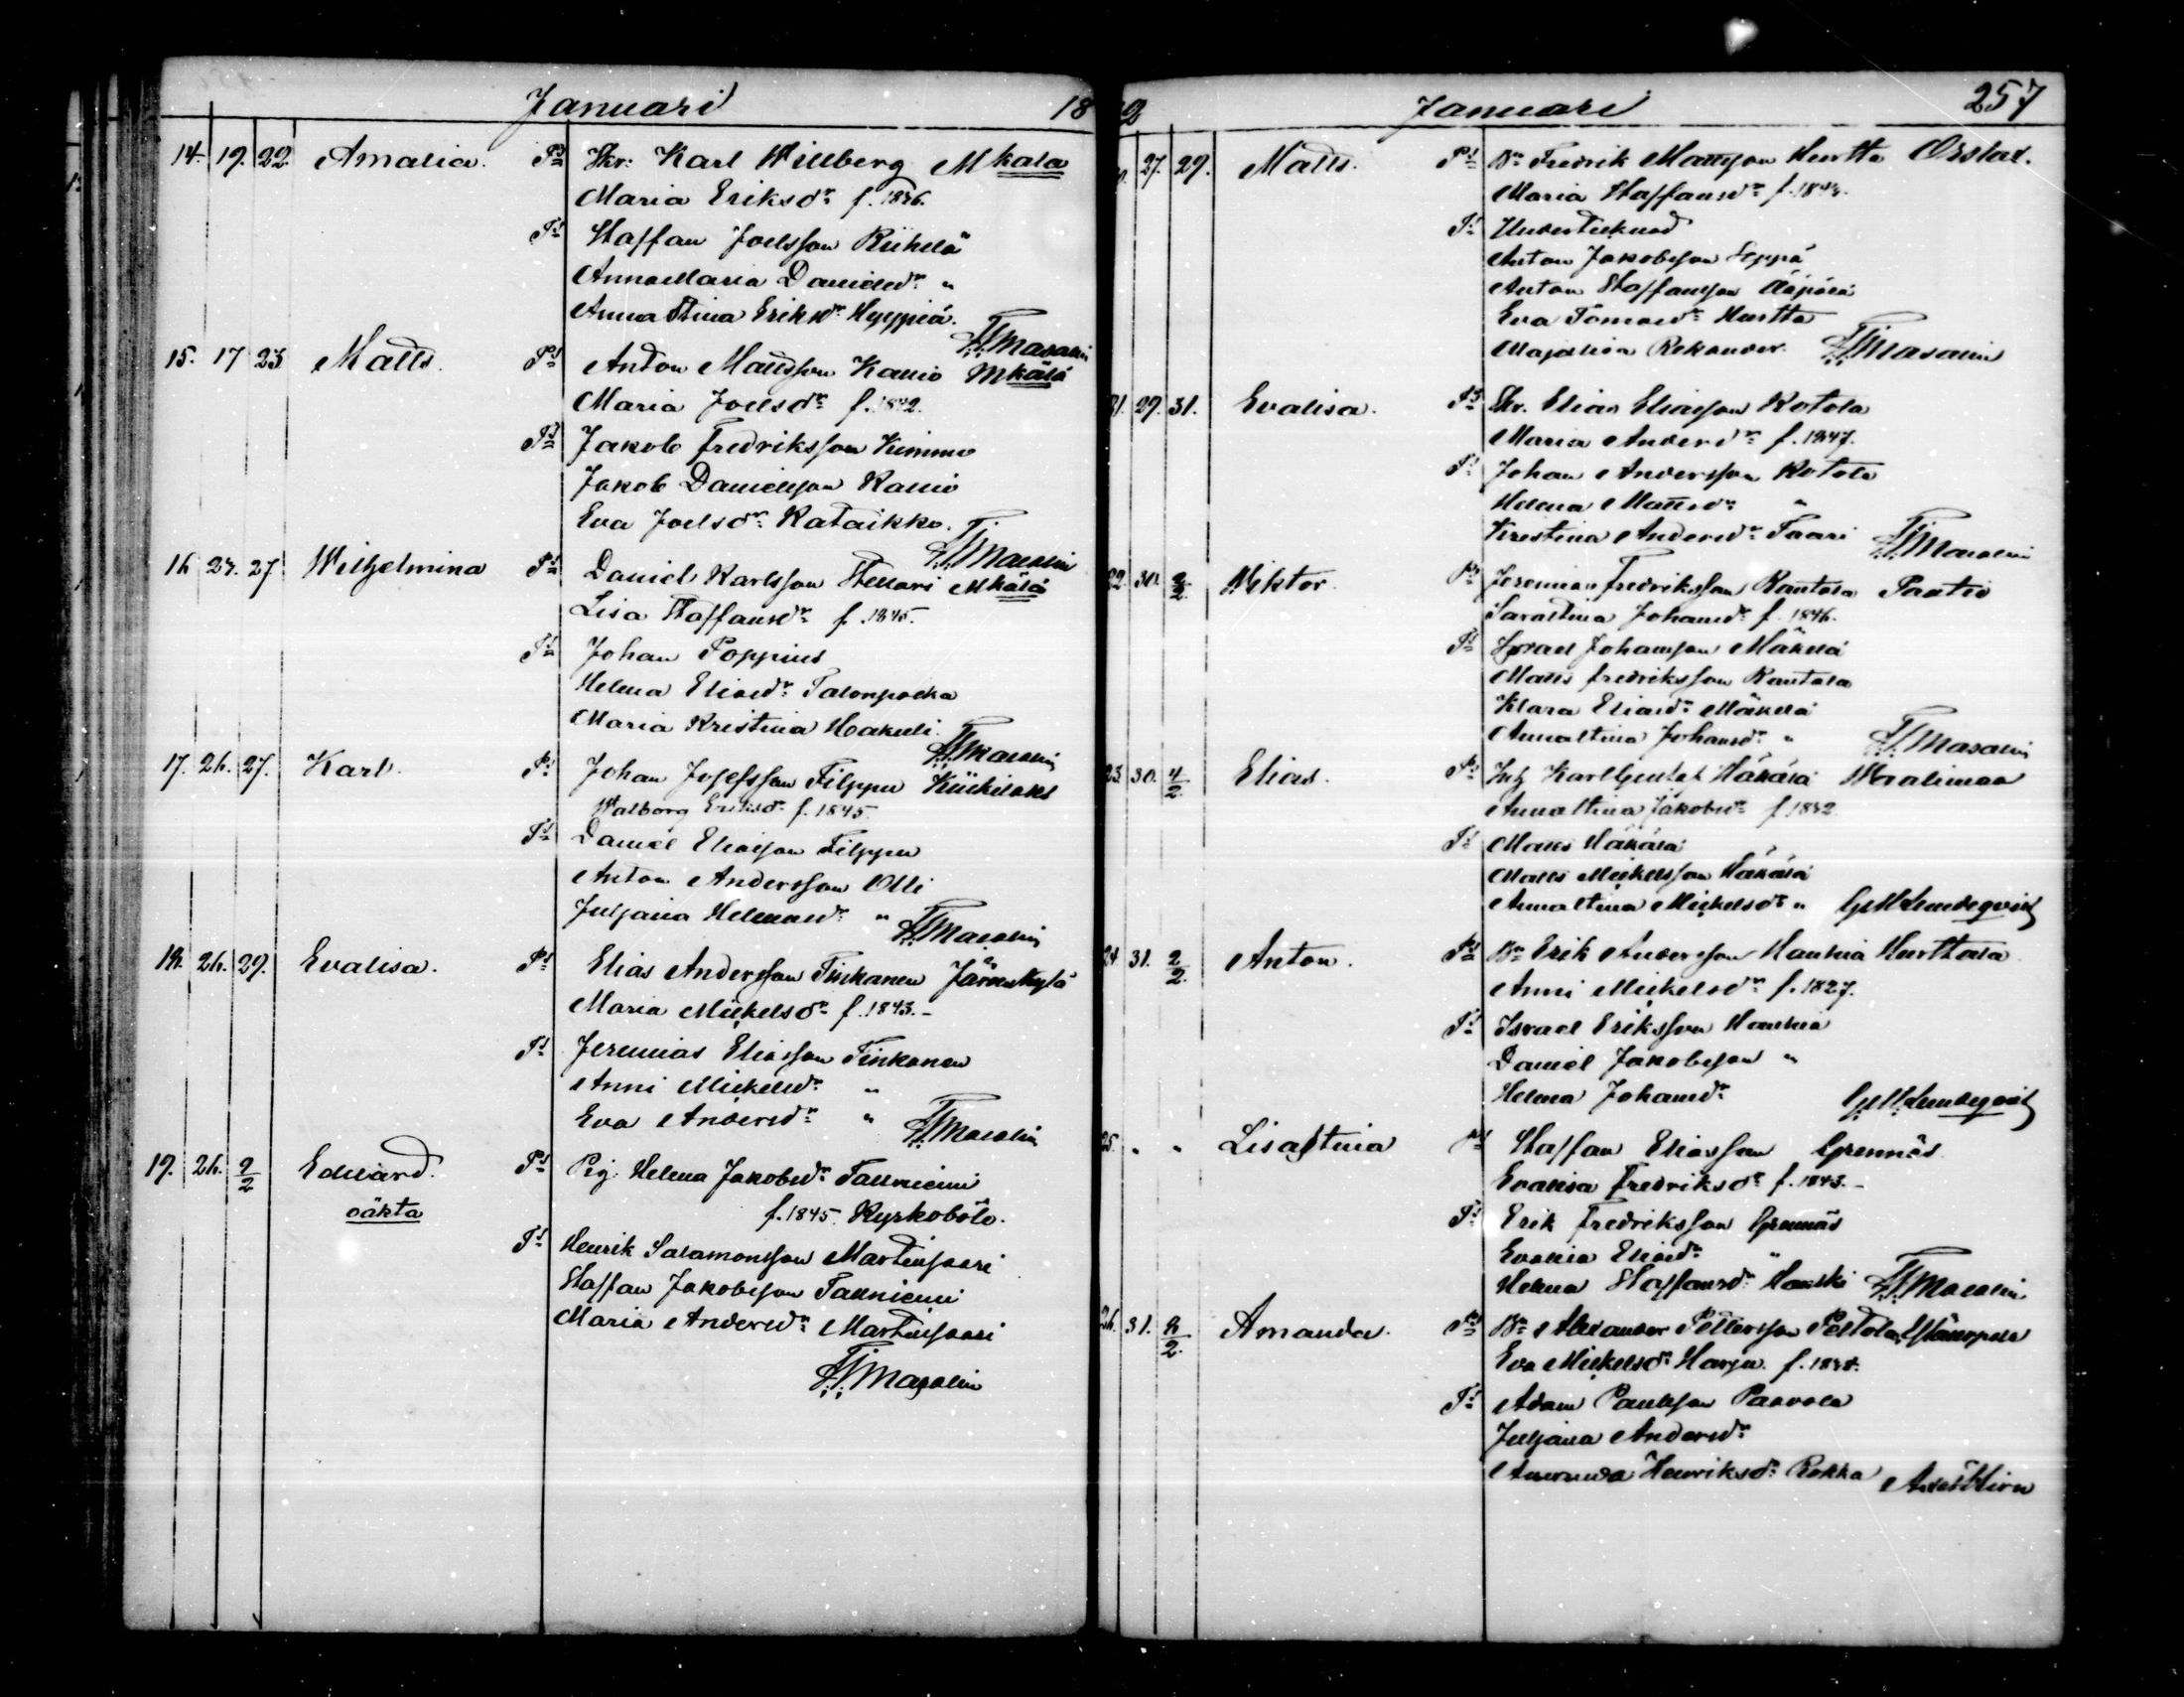 Januari 18
14. 19. 22. Amalia. Skr: Karl Willberg Mkala
Maria Eriksdr f. 1836.
Staffan Joelsson Riihelä
Annamaria Danielsdr "
Anna Stina Eriksdr Hyyppiä.
Masalin
15. 17 23 Matts. Anton Mattsson Kanio Mkälä
Maria Joelsdr f. 1842.
Jakob Fredriksson Kimmo
Jakob Danielsson Kanio
Eva Joelsdr Rataikko.
Masalin
16 24. 27. Wilhelmina Daniel Karlsson Mkälä
Lisa Staffansdr f. 1845.
Johan Poppius
Helena Eliaedr Talonpoika
Maria Kristina Hakuli.
Masalin
17. 26. 27. Karl. Johan Josefsson Filppu Kiiskilaks
Walborg Eriksdr f. 1845.
Daniel Eliasson Filppu
Anton Andersson Olli
Juljana "
Masalin
18. 26. 29. Evalisa. Elias Andersson Tiinkanen Järvenkylä
Maria Mickelsdr f. 1843.-
Jeremias Eliasson Tiinkanen
Anni Mickelsdr "
Eva Andersdr "
Masalin
19. 26. 2/2 Edvard. Pig. Helena Jakobsdr
oäkta f. 1845. Kyrkoböle.
Henrik Salamonsson Martinsaari
Staffan Jakobsson
Maria Andersdr Martinsaari
Masalin
2 Januari 257
27. 29. Matts. Bn Fredrik Mattsson Hurtta Orslax.
Maria Staffansdr
Undertecknad
Anton Jakobsson Seppä
Anton Staffansson
Eva Tomasdr Hurtta
Majalisa Rekander.
Masalin
21. 29. 31. Evalisa. Skr. Elias Eliasson Kotola
Maria Andersdr f. 1847.
Johan Andersson Kotola
Helena Mattsdr "
Kristina Andersdr Taari
Masalin
22. 30. 2/2. Wiktor. Jeremias Fredriksson Rantala Paatio
Sarastina Johansdr f. 1846.
Israel Johansson Mäkelä
Matts Fredriksson Rantala
Klara Eliaedr Mäkelä
Annastina Johansdr "
Masalin
23 30. 4/2. Elias. Karl Gustaf Häkälä Wraalimaa
Annastina Jakobsdr f. 1832.
Matts Häkälä
Matts Mickelsson Häkälä
Annastina Mickelsdr " Lundeqvist
24 31. 2/2. Anton. Bn Erik Andersson Hanhia Hurttala
Anni Mickelsdr f. 1827.
Israel Eriksson Hanhia
Daniel Jakobsson "
Helena Johansdr
Lundeqvist
25. " " Lisastina Staffan Eliasson Grennäs
Evalisa Fredriksdr f. 1843.-
Erik Fredriksson Grennäs
Evalisa Eliaedr "
Helena Staffansdr Hanski
Masalin
26. 31. 2/2. Amanda. Bn Alexander Pettersson Peltola
Eva Mickelsdr Harju f. 1838.
Adam Paulsson Paavola
Juljana Andersdr
Amanda Henriksdr Rokka Axel Hirn